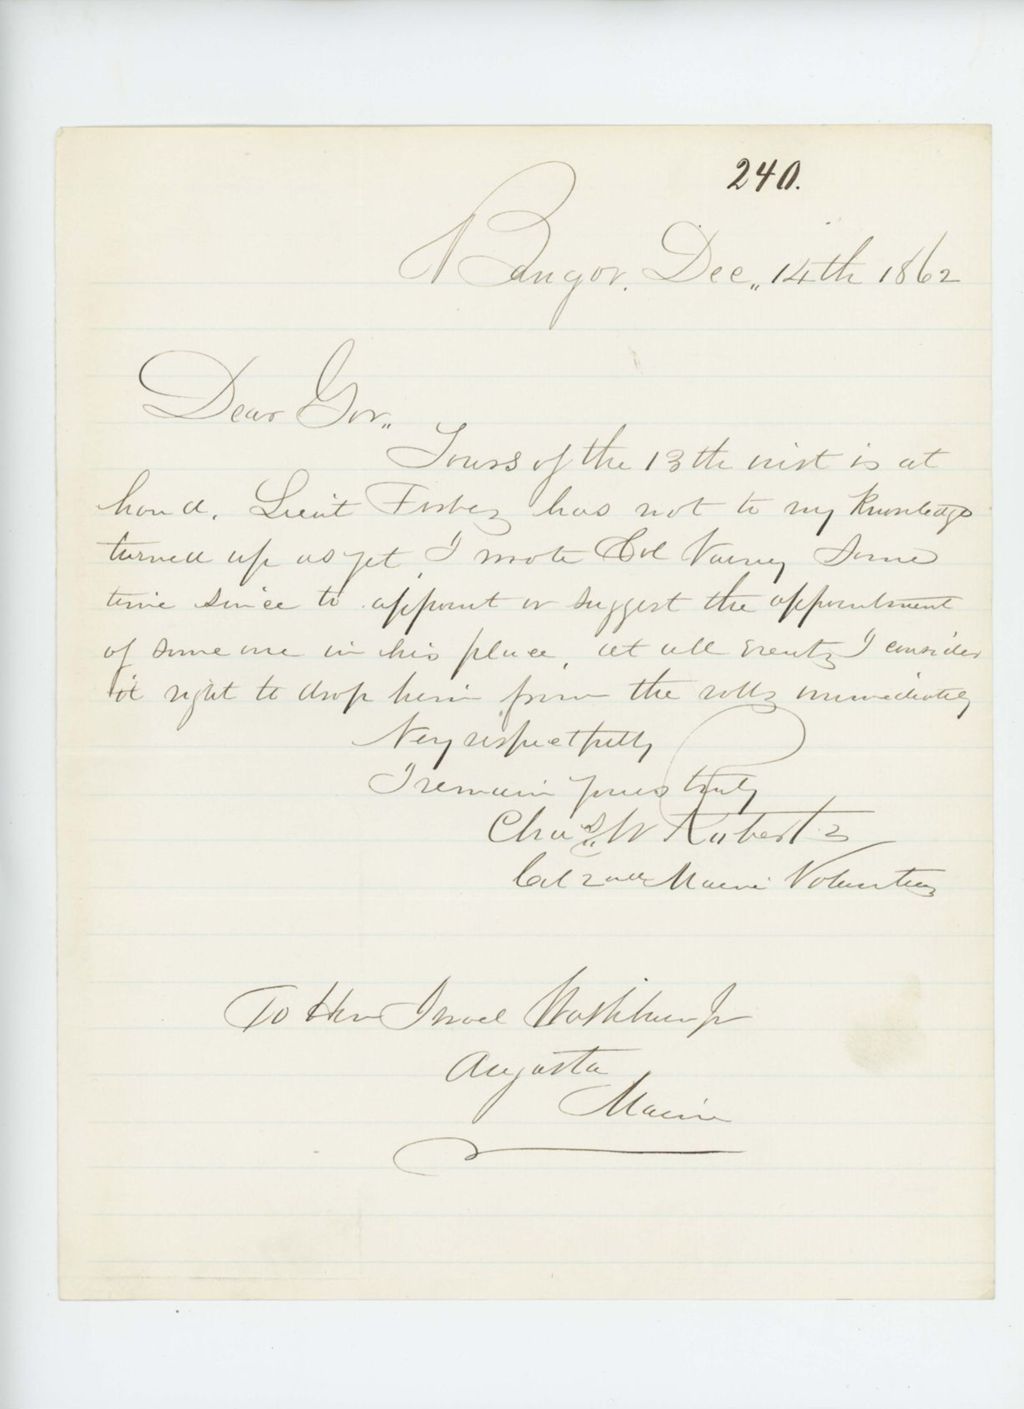 240.
Bangor, Dec,, 14th 1862
Dear Gov,,
Yours of the 13th inst is at
hand. Lieut Forbes has not to my knowledge
turned up as yet, I wrote Col Varney some
time since to appoint or suggest the appointment
of some one in his place, at all events I consider
it right to drop him from the rolls immediately
Very respectfully
I remain yours truly
Chas,, W Roberts
Col 2nd Maine Volunteers
To Hon Israel Washburn Jr
Augusta
Maine